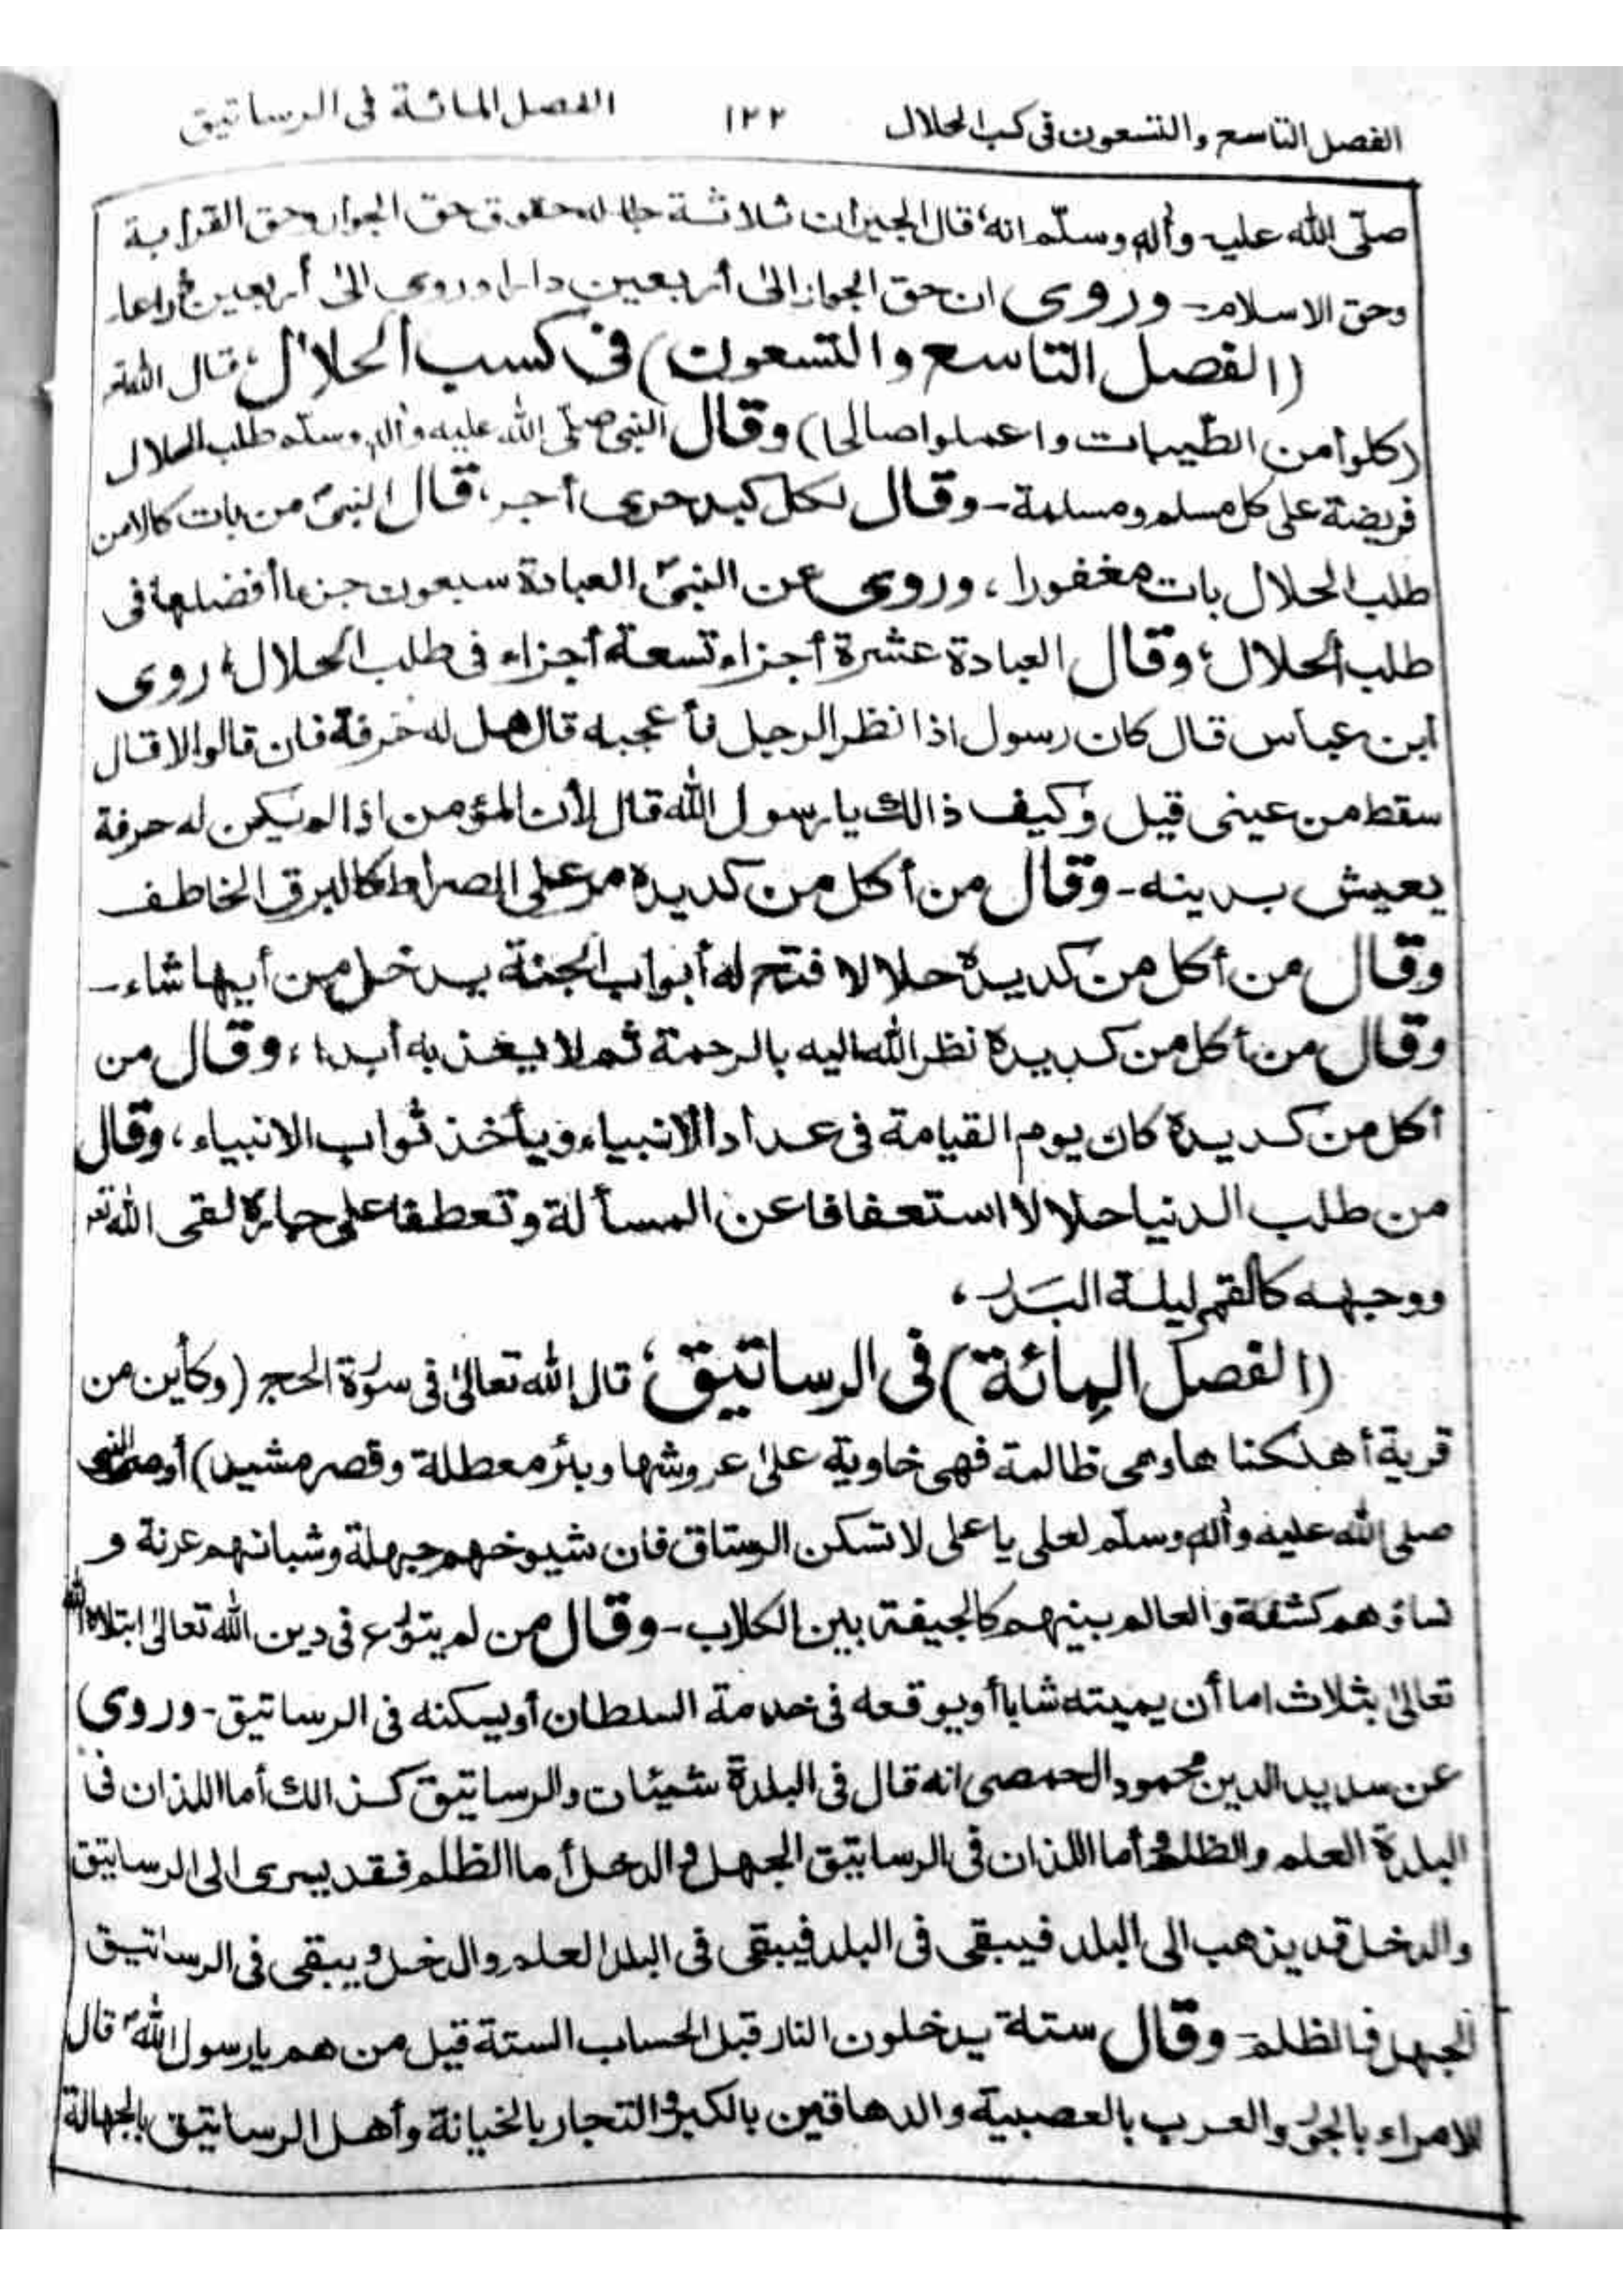 الفصل التاسع والتسعون فى كسب الحلال ١٢٢ الفصل المائة فى الرساتيق
صلّى الله عليه وأله وسلّم انه قال الجيران ثلاثة حقوق حق الجوار وحق القرابة
وحق الاسلام - وروى ان حق الجوار الىٰ أربعين دارا وروى الىٰ أربعين ذراعا
(الفصل التاسع والتسعون) فى كسب الحلال، قال الله تم
(كلوا من الطّيبات واعملوا صالحا) وقال النبى صلّى الله عليه وأله وسلّم طلب الحلال
فريضة على كل مسلم ومسلمة - وقال لكل كبد حرى أجر، قال النبىّ من بات كالا من
طلب الحلال بات مغفورا، وروى عن النبىّ العبادة سبعون جزءا أفضلها فى
طلب الحلال، وقال العبادة عشرة أجزاء تسعة أجزاء فى طلب الحلال، روى
ابن عباس قال كان رسول اذا نظر الرجل فأعجبه قال هل له حرفة فان قالوا لا قال
سقط من عينى قيل وكيف ذالك يا رسول الله قال لأن المؤمن اذا لم يكن له حرفة
يعيش بدينه - وقال من أكل من كد يده مر على الصراط كالبرق الخاطف
وقال من أكل من كد يده حلالا فتح له أبواب الجنة يدخل من أيها شاء -
وقال من أكل من كد يده نظر الله اليه بالرحمة ثم لا يعذبه أبدا، وقال من
أكل من كد يده كان يوم القيامة فى عداد الانبياء ويأخذ ثواب الانبياء، وقال
من طلب الدنيا حلالا استعفافا عن المسألة وتعطفا على جاره لقى الله تع
ووجهه كالقمر ليلة البَدر،
(الفصل المِائة) فى الرساتيق، قال الله تعالىٰ فى سورة الحج (وكأين من
قرية أهلكنا ها وهى ظالمة فهى خاوية علىٰ عروشها وبئر معطلة وقصر مشيد) أوصى النبى
صلى الله عليه وأله وسلّم لعلى يا على لا تسكن الرستاق فان شيوخهم جهلة وشبانهم عرنة و
نساؤهم كشفة والعالم بينهم كالجيفة بين الكلاب - وقال من لم يتورع فى دين الله تعالىٰ ابتلاه الله
تعالىٰ بثلاث اما أن يميته شابا أو يوقعه فى خدمة السلطان أو يسكنه فى الرساتيق - وروى
عن سديد الدين محمود الحمصى انه قال فى البلدة شيئان والرساتيق كذالك أما اللذان فى
البلدة العلم والظلم وأما اللذان فى الرساتيق الجهل و الدخل أما الظلم فقد يسرى الى الرساتيق
والدخل قد يذهب الى البلد فيبقى فى البلد فيبقى فى البلد العلم والدخل و يبقى فى الرساتيق
الجهل فالظلم - وقال ستة يدخلون النار قبل الحساب الستة قيل من هم يا رسول اللهّ قال
للامراء بالجور والعرب بالعصبية والدهاقين بالكبر والتجار بالخيانة وأهل الرساتيق بالجهالة